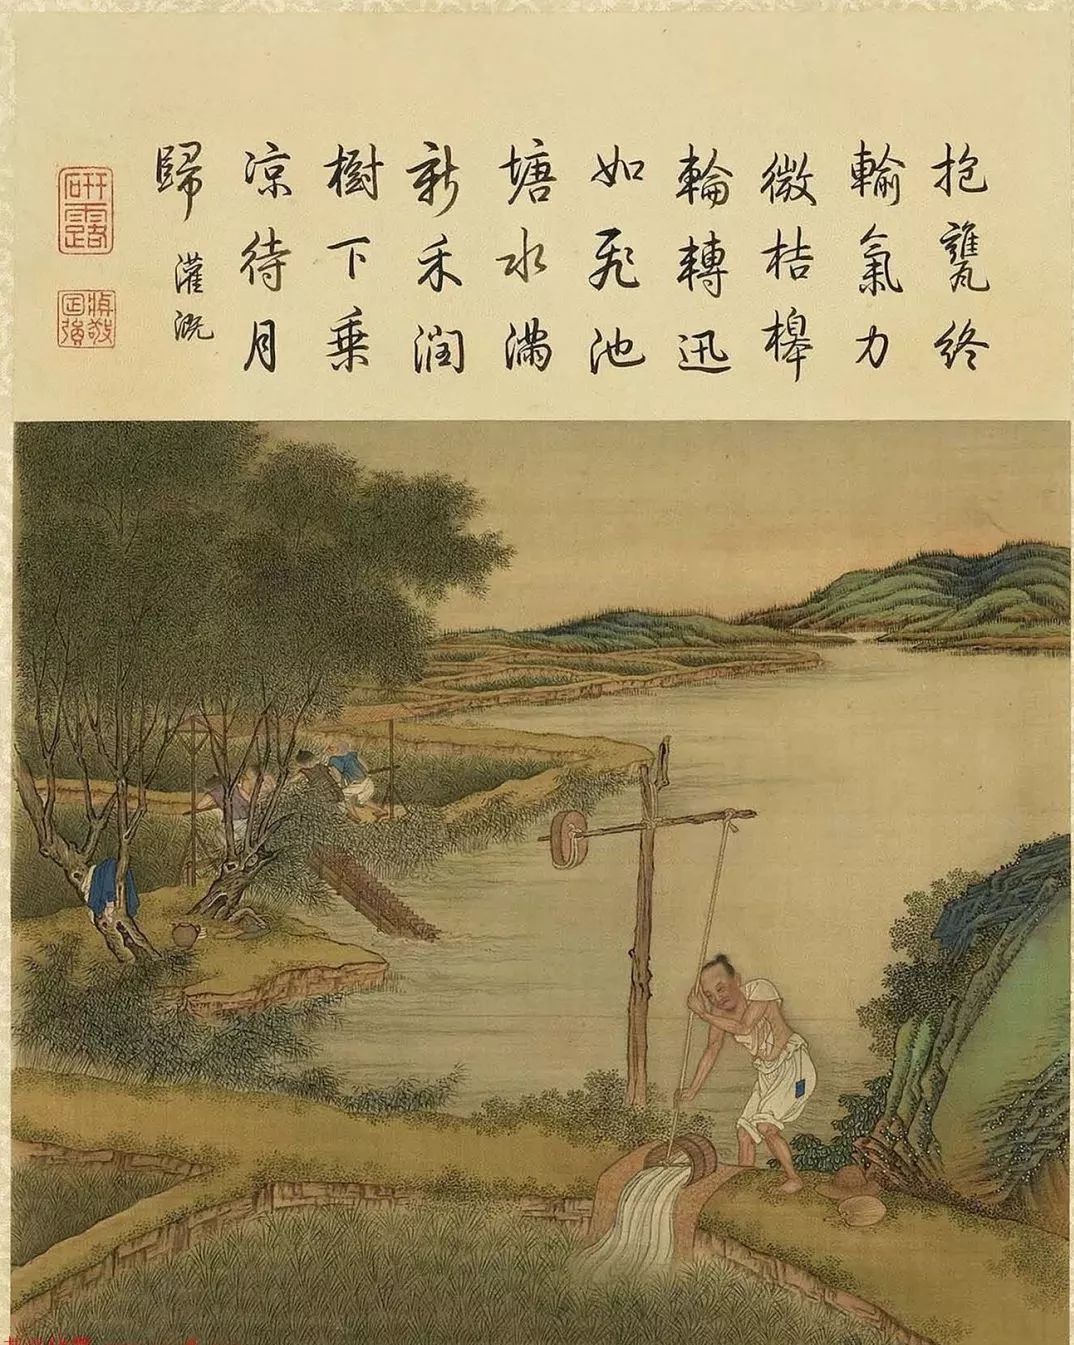 抱甕終
輸氣力
微桔槔
輪轉迅
如飛池
塘水滿
新禾潤
樹下乗
涼待月
歸
灌溉